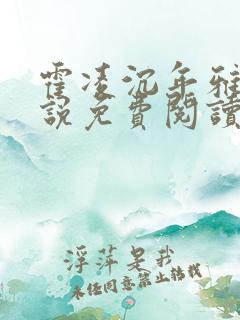 霍凌沉年雅
說免費閱讀
浮萍是我
未经同意禁止转载